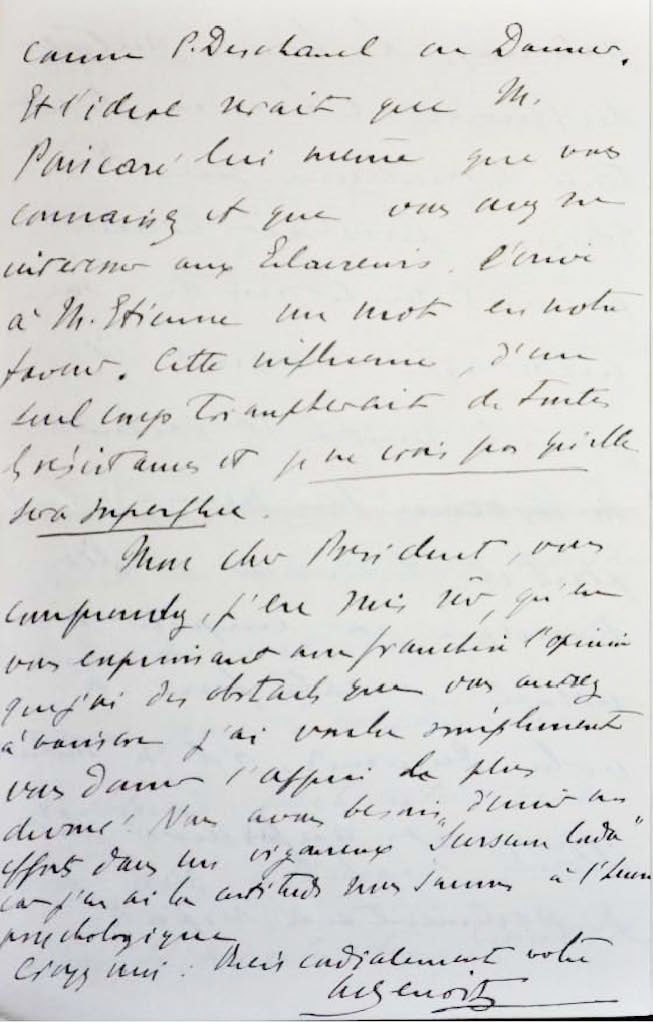 comme P. Deschanel ou Doumer.
Et l'idéal serait que M.
Poincaré lui même que vous
connaissez et que vous avez su
intéresser aux Eclaireurs, l'envoi
à M. Etienne un mot en notre
faveur. Cette influence d'un
seul coup triompherait de toutes
les résistances et je ne crois pas qu'elle
sera superflue.
Mon cher Président, vous
comprendrez, j'en suis sûr, qu'en
vous exprimant avec franchise l'opinion
que j'ai des obstacles que vous aurez
à vaincre j'ai voulu simplement
vous donner l'appui le plus
dévoué! Nous avons besoin d'unir nos
efforts dans un vigoureux "Sursum Corda"
car j'en ai la certitude nous sommes à l'heure
psychologique
Croyez moi : Bien cordialement votre
Benoit